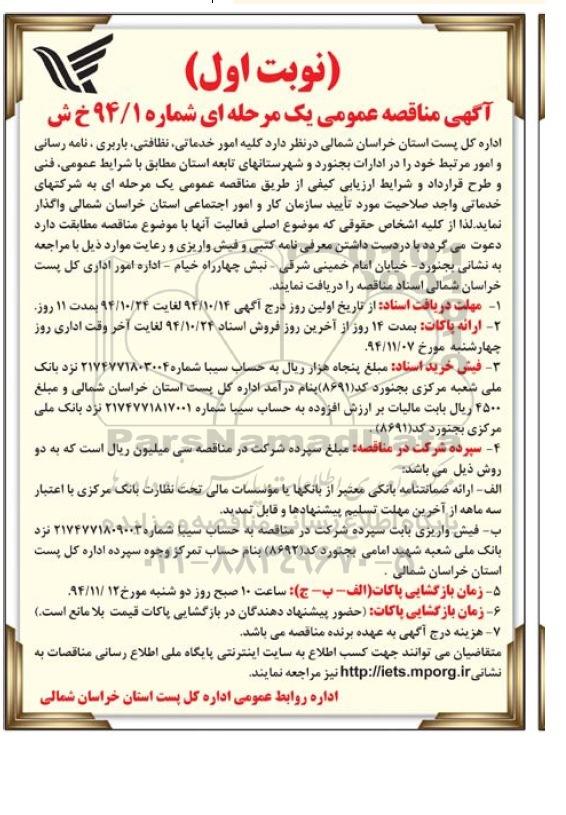 (نوبت اول)
آگهی مناقصه عمومی یک مرحله ای شماره ۹۴/۱ خ ش
اداره کل پست استان خراسان شمالی درنظر دارد کلیه امور خدماتی، نظافتی، باربری ، نامه رسانی
و امور مرتبط خود را در ادارات بجنورد و شهرستانهای تابعه استان مطابق با شرایط عمومی، فنی
و طرح قرارداد و شرایط ارزیابی کیفی از طریق مناقصه عمومی یک مرحله ای به شرکتهای
خدماتی واجد صلاحیت مورد تأیید سازمان کار و امور اجتماعی استان خراسان شمالی واگذار
نماید.لذا از کلیه اشخاص حقوقی که موضوع اصلی فعالیت آنها با موضوع مناقصه مطابقت دارد
دعوت می گردد با دردست داشتن معرفی نامه کتبی و فیش واریزی و رعایت موارد ذیل با مراجعه
به نشانی بجنورد- خیابان امام خمینی شرقی – نبش چهارراه خیام – اداره امور اداری کل پست
خراسان شمالی اسناد مناقصه را دریافت نمایند.
۱- مهلت دریافت اسناد: از تاریخ اولین روز درج آگهی ۹۴/۱۰/۱۴ لغایت ۹۴/۱۰/۲۴ بمدت ۱۱ روز.
۲- ارائه پاکات: بمدت ۱۴ روز از آخرین روز فروش اسناد ۹۴/۱۰/۲۴ لغایت آخر وقت اداری روز
چهارشنبه مورخ ۹۴/۱۱/۰۷.
۳- فیش خرید اسناد: مبلغ پنجاه هزار ریال به حساب سیبا شماره۲۱۷۴۷۷۱۸۰۳۰۰۴ نزد بانک
ملی شعبه مرکزی بجنورد کد(۸۶۹۱)بنام درآمد اداره کل پست استان خراسان شمالی و مبلغ
۴۵۰۰ ریال بابت مالیات بر ارزش افزوده به حساب سیبا شماره ۲۱۷۴۷۷۱۸۱۷۰۰۱ نزد بانک ملی
مرکزی بجنورد کد(۸۶۹۱) .
۴- سپرده شرکت در مناقصه: مبلغ سپرده شرکت در مناقصه سی میلیون ریال است که به دو
روش ذیل می باشد:
الف- ارائه ضمانتنامه بانکی معتبر از بانکها یا مؤسسات مالی تحت نظارت بانک مرکزی با اعتبار
سه ماهه از آخرین مهلت تسلیم پیشنهادها و قابل تمدید.
ب- فیش واریزی بابت سپرده شرکت در مناقصه به حساب سیبا شماره۲۱۷۴۷۷۱۸۰۹۰۰۳ نزد
بانک ملی شعبه شهید امامی بجنورد کد(۸۶۹۲) بنام حساب تمرکز وجوه سپرده اداره کل پست
استان خراسان شمالی .
۵- زمان بازگشایی پاکات(الف- ب- ج): ساعت ۱۰ صبح روز دو شنبه مورخ۹۴/۱۱/۱۲.
۶- زمان بازگشایی پاکات: (حضور پیشنهاد دهندگان در بازگشایی پاکات قیمت بلا مانع است.)
۷- هزینه درج آگهی به عهده برنده مناقصه می باشد.
متقاضیان می توانند جهت کسب اطلاع به سایت اینترنتی پایگاه ملی اطلاع رسانی مناقصات به
نشانیhttp://iets.mporg.ir نیز مراجعه نمایند.
اداره روابط عمومی اداره کل پست استان خراسان شمالی
ParsNamadData
پایگاه اطلاع رسانی مناقصه و مزایده
۰۲۱-۸۸۳۴۹۶۷۰-۵